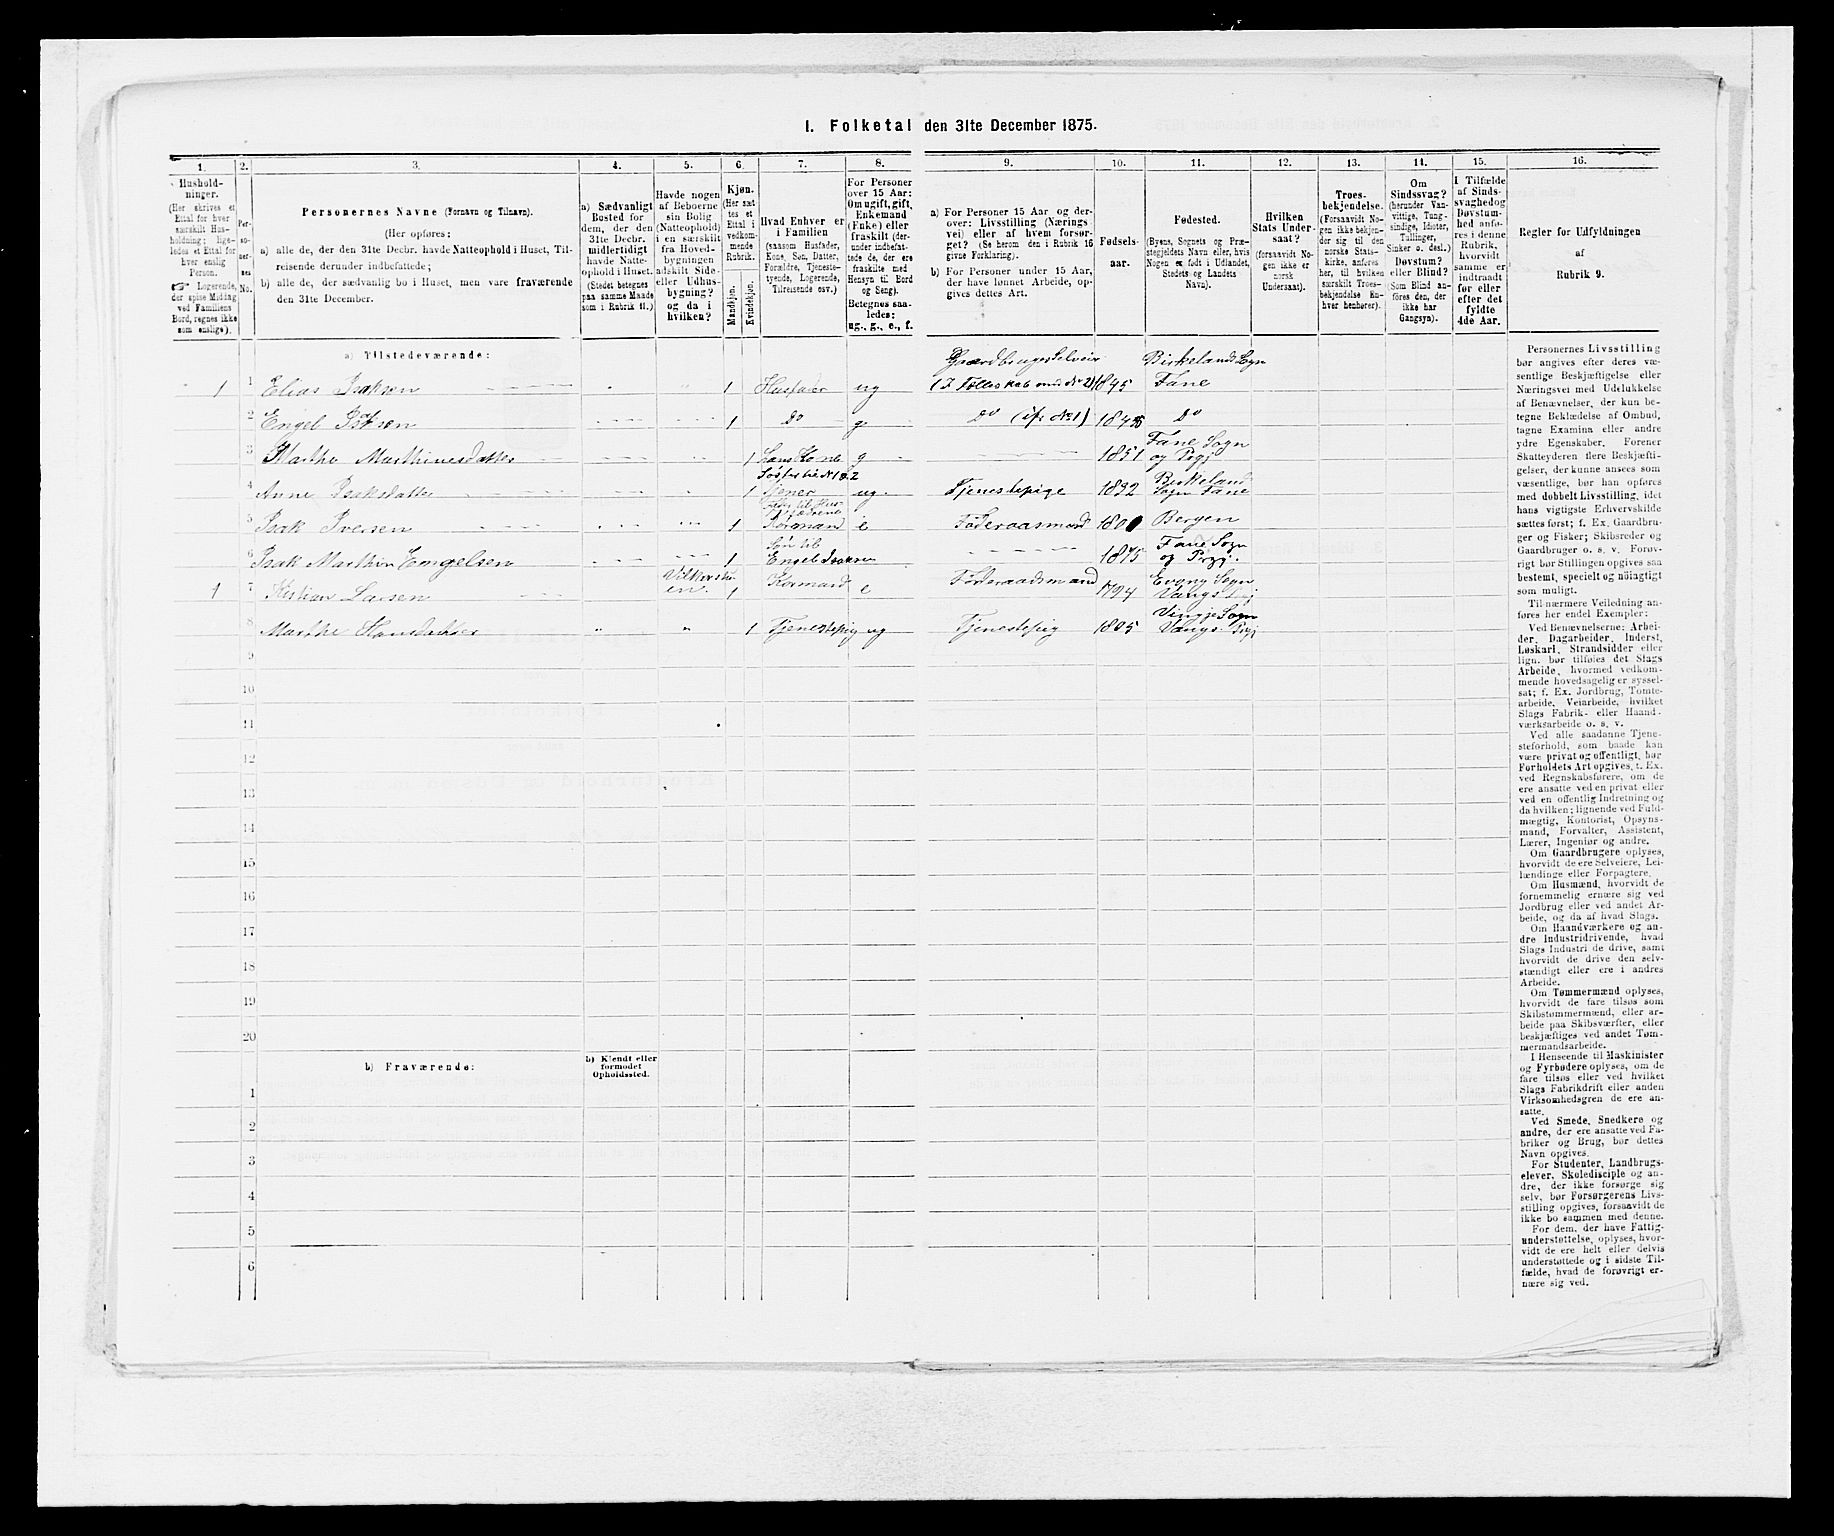 1. Folketal den 31te December 1875.
1. 2. 3. 4. 5. 6. 7. 8. 9. 10. 11. 12. 13. 14. 15. 16.
Hushold-
ninger.
(Her skrives et
Ettal for hver
særskilt Hus-
holdning; lige-
ledes et Ettal for
hver enslig
Person.
☞ Logerende,
der spise Middag
ved Familiens
Bord, regnes ikke
som enslige).
Per-
so-
ner-
nes
No.
Personernes Navne (Fornavn og Tilnavn).
(Her opføres:
a) alle de, der den 31te Decbr. havde Natteophold i Huset, Til-
reisende derunder indbefattede;
b) alle de, der sædvanlig bo i Huset, men vare fraværende
den 31te December.
a) Sædvanligt
Bosted for
dem, der den
31te Decbr.
midlertidigt
havde Natte-
ophold i Huset.
(Stedet betegnes
paa samme Maade
som i Rubrik 11.)
Havde nogen
af Beboerne
sin Bolig
(Natteophold)
i en særskilt
fra Hoved-
bygningen
adskilt Side-
eller Udhus-
bygning?
og da i
hvilken?
Kjøn.
(Her sæt-
tes et
Ettal i
vedkom-
mende
Rubrik.
Mandkjøn.
Kvindekjøn.
Hvad Enhver er
i Familien
(saasom Husfader,
Kone, Søn, Datter,
Forældre, Tjeneste-
tyende, Logerende,
Tilreisende osv.)
For Personer
over 15 Aar:
Om ugift, gift,
Enkemand
(Enke) eller
fraskilt (der-
under indbefat-
tede de, der ere
fraskilte med
Hensyn til Bord
og Seng).
Betegnes saa-
ledes:
ug., g., e., f.
a) For Personer 15 Aar og der-
over: Livsstilling (Nærings-
vei) eller af hvem forsør-
get? (Se herom den i Rubrik 16
givne Forklaring).
b) For Personer under 15 Aar,
der have lønnet Arbeide, op-
gives dettes Art.
Fødsels-
aar.
Fødested.
(Byens, Sognets og Præ-
stegjeldets Navn eller, hvis
Nogen er født i Udlandet,
Stedets og Landets
Navn).
Hvilken
Stats Under-
saat?
(forsaavidt No-
gen ikke er
norsk
Undersaat).
Troes-
bekjendelse.
(Forsaavidt No-
gen ikke bekjen-
der sig til den
norske Stats-
kirke, anføres
her, til hvilken
særskilt Troes-
bekjendelse En-
hver henhører).
Om
Sindssvag?
(herunder Van-
vittige, Tung-
sindige, Idioter,
Tullinger,
Sinker o. desl.)
Døvstum?
eller Blind?
(Som Blind an-
føres den, der
ikke har
Gangsyn).
I Tilfælde
af Sinds-
svaghed og
Døvstum-
hed anfø-
res i denne
Rubrik,
hvorvidt
samme er
indtraadt
før eller
efter det
fyldte
4de Aar.
Regler for Udfyldningen
af
Rubrik 9.
a) Tilstedeværende:
1 1 Elias Isaksen 1 Husfader ug Gaardbruger Selveier (I Fælleskab med No 2) 1845 Birkelands Sogn Fane
2 Engel Isaksen 1 Do g Do (if. No 1) Do
3 Marthe Marthinesdatter 1 Kone g 1851 Fane Sogn og Prgj
4 Anne Isaksdatter 1 Tjener ug. Tjenestepige 1832 Birkeland Sogn Fane
5 Isak Iversen 1 e Føderaadsmand Bergen
6 Isak Marthin Engelsen 1 Søn til Engel Isaksen 1875 Fane Sogn og Prgj.
1 7 Kristian Larsen 1 e Føderaadsmand 1794 Evang Sogn Vangs Prgj
8 Marthe Hansdatter 1 Tjenestepig ug Tjenestepig 1805 Vinje Sogn Vangs Prgj
9
10
11
12
13
14
15
16
17
18
19
20
b) Fraværende:
b) Kjendt eller
formodet
Opholdssted.
1
2
3
4
5
6
Personernes Livsstilling
bør angives efter deres væ-
sentlige Beskjæftigelse eller
Næringsvei med Udelukkelse
af Benævnelser, der kun be-
tegne Beklædelse af Ombud,
tagne Examina eller andre
ydre Egenskaber. Forener
Skatteyderen flere Beskjæfti-
gelser, der kunne ansees som
væsentlige, bør han opføres
med dobbelt Livsstilling, idet
hans vigtigste Erhvervskilde
sættes først; f. Ex. Gaardbru-
ger og Fisker; Skibsreder og
Gaardbruger o. s. v. Forøv-
rigt bør Stillingen opgives saa
bestemt, specielt og nøiagtigt
som muligt.
Til nærmere Veiledning an-
føres her endel Exempler:
Ved Benævnelserne: Arbei-
der, Dagarbeider, Inderst,
Løskarl, Strandsidder eller
lign. bør tilføies det Slags
Arbeide, hvormed vedkom-
mende hovedsagelig er syssel-
sat; f. Ex. Jordbrug, Tomte-
arbeide, Veiarbeide, hvilket
Slags Fabrik- eller Haand-
værksarbeide o. s. v.
Ved alle saadanne Tjene-
steforhold, som baade kan
være privat og offentligt, bør
Forholdets Art opgives, t. Ex.
ved Regnskabsførere, om de
ere ansatte ved en privat eller
ved en offentlig Indretning og
da hvilken; lignende ved Fuld-
mægtig, Kontorist, Opsyns-
mand, Forvalter, Assistent,
Lærer, Ingeniør og andre.
Om Gaardbrugere oplyses,
hvorvidt de ere Selveiere, Lei-
lændinge eller Forpagtere.
Om Husmænd, hvorvidt de
fornemmelig ernære sig ved
Jordbrug eller ved andet Ar-
beide, og da af hvad Slags.
Om Haandværkere og an-
dre Industridrivende, hvad
Slags Industri de drive, samt
hvorvidt de drive den selv-
stændigt eller ere i andres
Arbeide.
Om Tømmermænd oplyses,
hvorvidt de fare tilsøs som
Skibstømmermænd, eller ar-
beide paa Skibsværfter, eller
beskjæftiges ved andet Tøm-
mermandsarbeide.
I Henseende til Maskinister
og Fyrbødere oplyses, om de
fare tilsøs eller ved hvilket
Slags Fabrikdrift eller anden
Virksomhedsgren de ere an-
satte.
Ved Smede, Snedkere og
andre, der ere ansatte ved Fa-
briker og Brug, bør dettes
Navn opgives.
For Studenter, Landbrugs-
elever, Skoledisciple og an-
dre, der ikke forsørge sig
selv, bør Forsørgerens Livs-
stilling opgives, forsaavidt de
ikke bo sammen med denne.
For dem, der have Fattig-
understøttelse, oplyses, hvor-
vidt de ere helt eller delvis
understøttede og i sidste Til-
fælde, hvad de forøvrigt er-
nære sig ved.